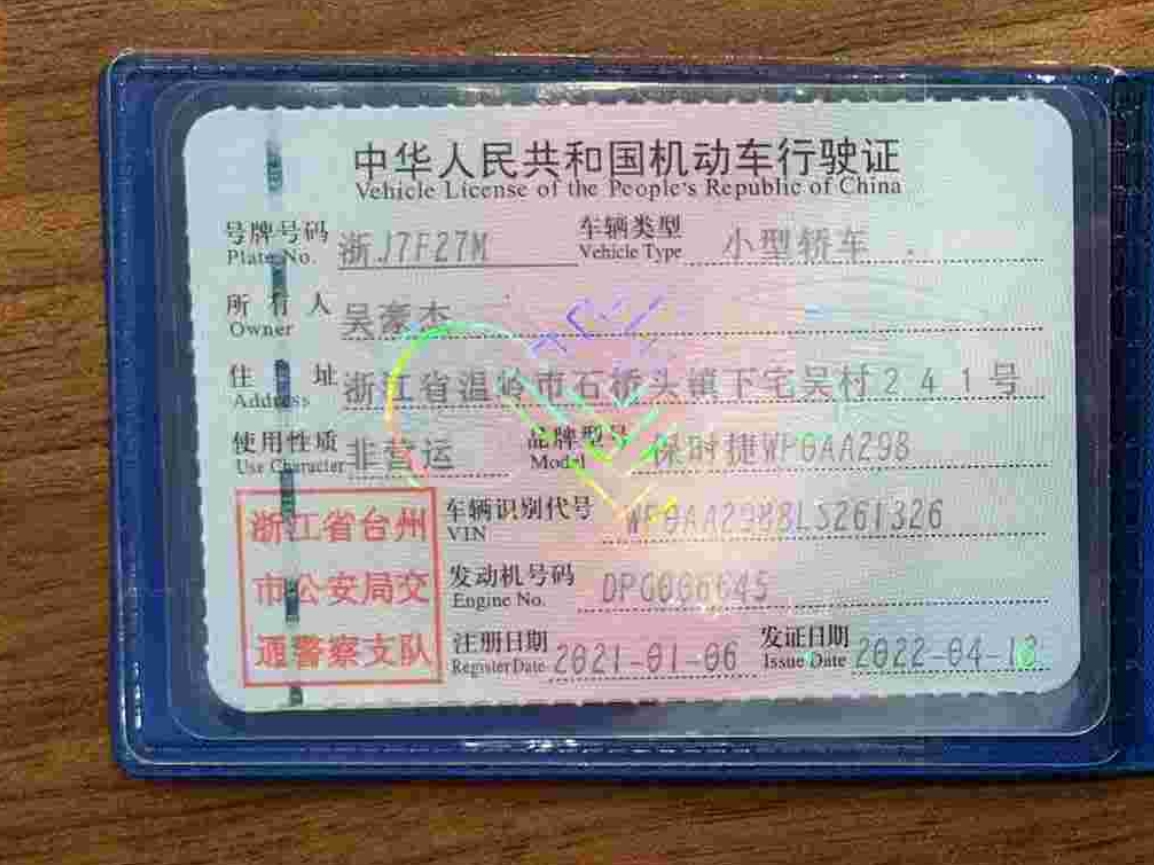 中华人民共和国机动车行驶证
Vehicle License of the People's Republic of China
号牌号码 浙J7F27M 车辆类型 小型轿车
Plate No. Vehicle Type
所有人 吴豪杰
Owner
住址 浙江省温岭市石桥头镇下宅吴村241号
Address
使用性质 非营运 品牌型号 保时捷WP0AA298
Use Character Model
浙江省台州 车辆识别代号 WP0AA2988LS261326
VIN
市公安局交 发动机号码
Engine No.
通警察支队 注册日期 2021-01-06 发证日期
Register Date Issue Date